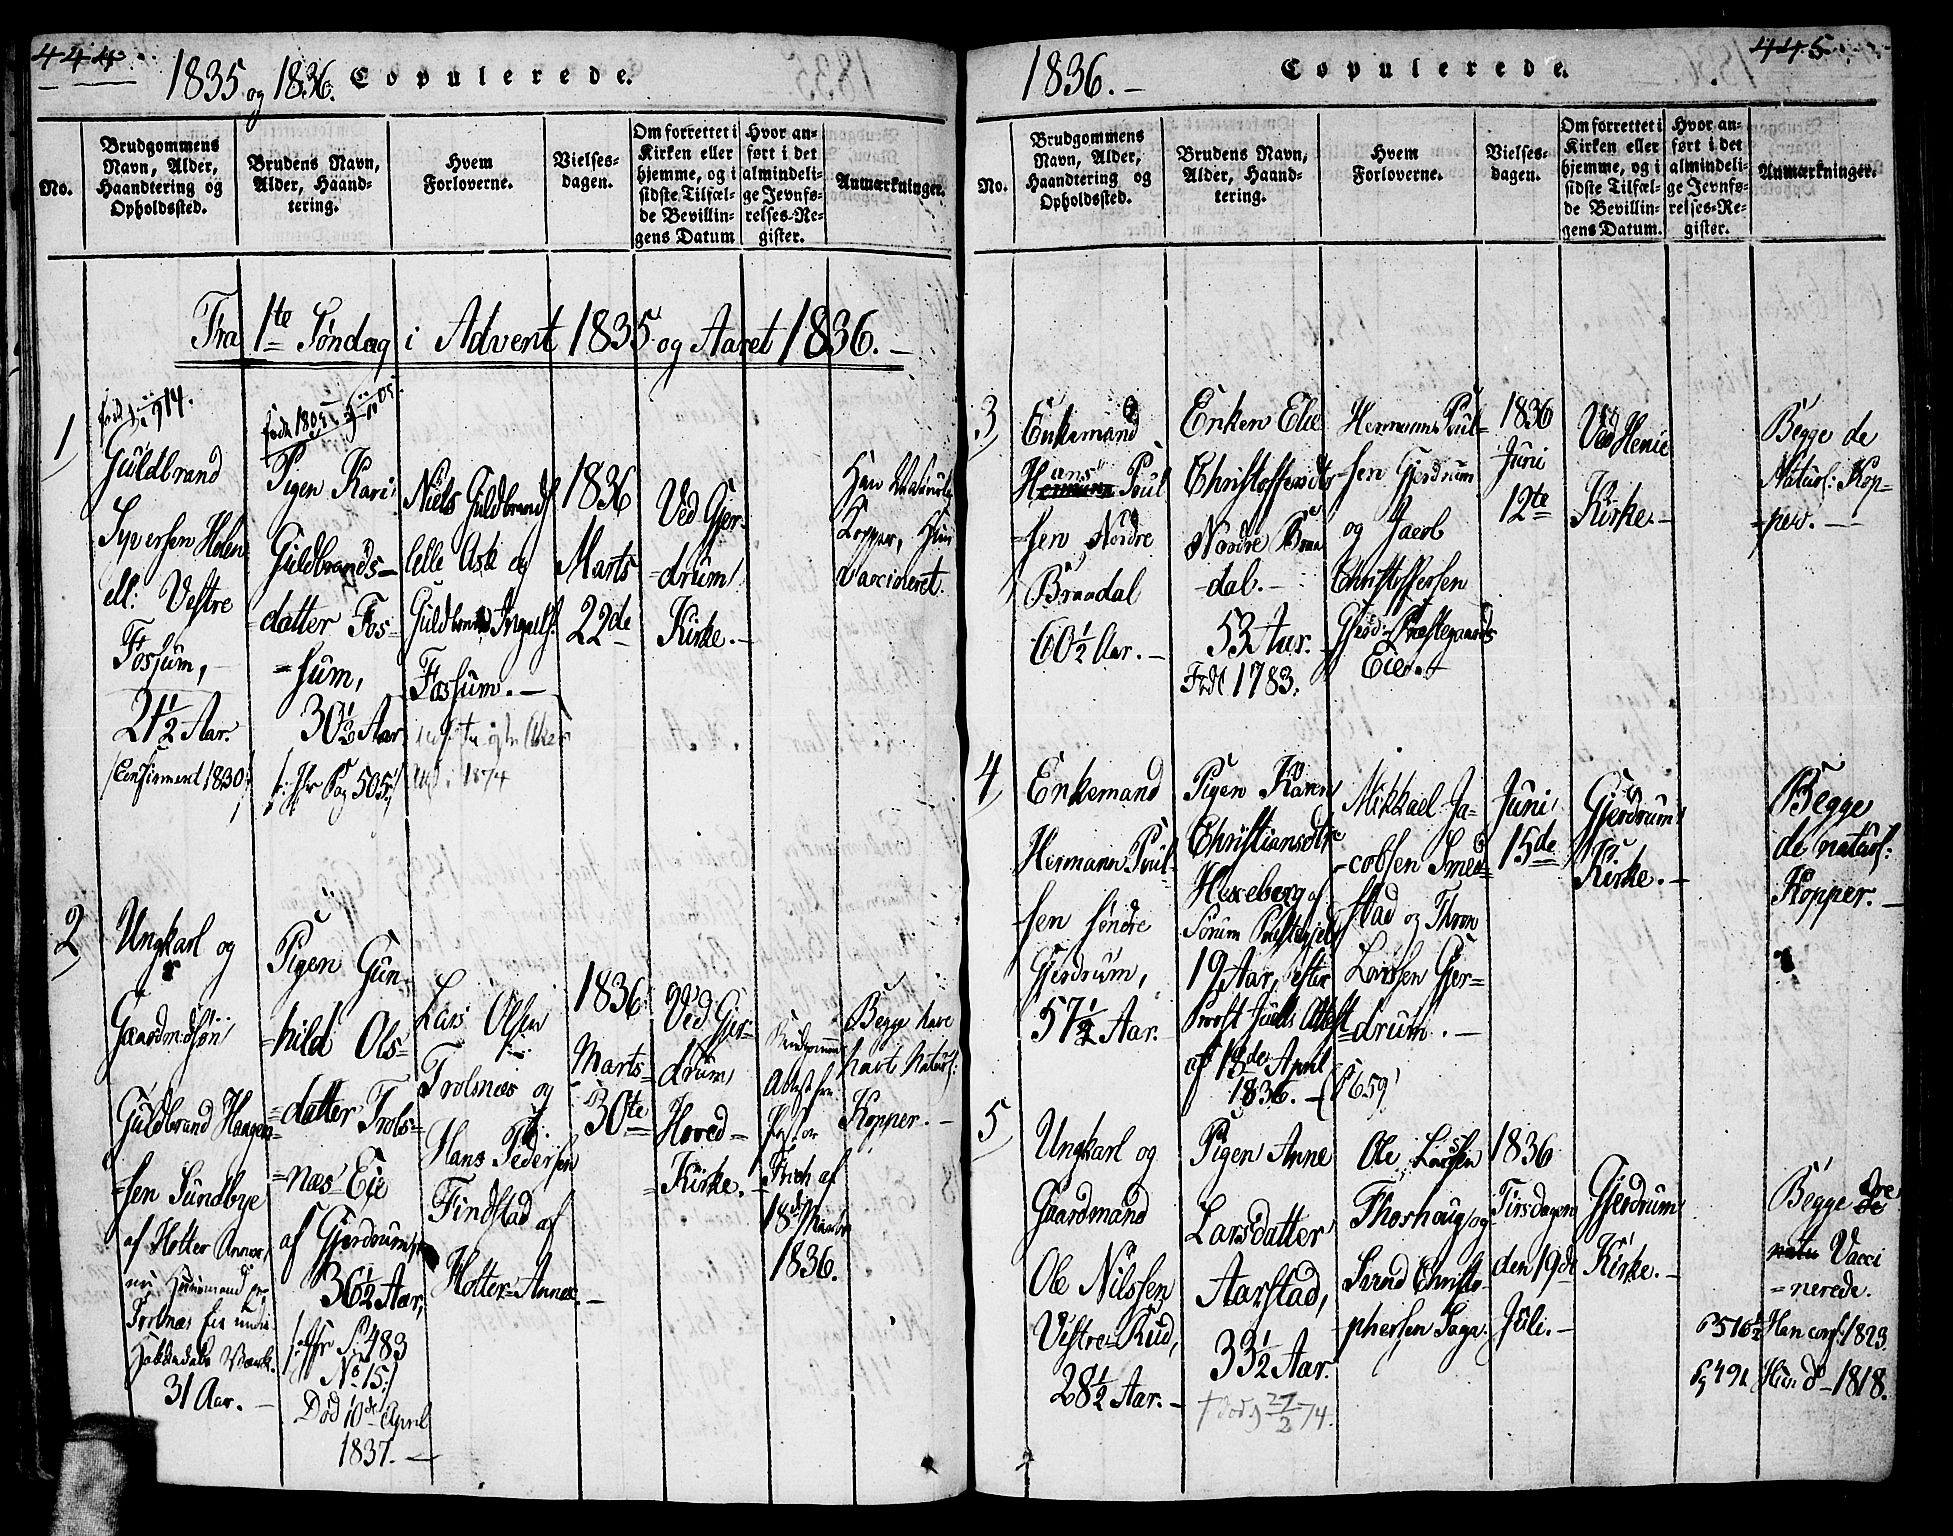 444
1835 og 1836. Copulerede.
No.
Brudgommens
Navn, Alder,
Haandtering og
Opholdssted.
Brudens Navn,
Alder, Haand-
tering.
Hvem
Forloverne.
Vielses-
dagen.
Om forrettet i
Kirken eller
hjemme, og i
sidste Tilfæl-
de Bevillin-
gens Datum
Hvor an-
ført i det
almindeli-
ge Jevnfø-
relses-Re-
gister.
Anmærkninger.
Fra 1te Søndag i Advent 1835 og Aaret 1836.
1
Guldbrand
Syversen Holen
ell: Vestre
Fossum,
21 1/2 Aar.
/Confirmert 1830/
Pigen Kari
Guldbrands-
datter Fos-
=sum,
30 1/2 Aar
Pag 505
Niels Guldbrands.
lille Ask og
Guldbrand Ingvels.
Fossum.
1874
1836
Marts
22de
Ved Gjer-
=drum
Kirke.
Han Naturlig
Kopper, Hun
Vaccineret.
2
Ungkarl og
Gaardmdsøn
Guldbrand Haagen=
=sen Sundbye
af Holter Annex,
nu Huusmand
Trolnæs Eie under
31 Aar.
Pigen Gun-
=hild Ols-
=datter Trols-
=næs Eie
af Gjerdrum,
36 1/2 Aar,
P. 483
No 15
Død 10de April
1837.
Lars Olsen
Trolsnæs og
Hans Pedersen
Findstad af
Holter=Annex.
1836
Marts
30te
Ved Gjer-
drum
Hoved-
Kirke.
Brudgommens
Attest fra
Pastor
af
18de Marts
1836.
Begge have
havt Naturl:
Kopper.
445
1836. Copulerede.
No.
Brudgommens
Navn, Alder,
Haandtering og
Opholdssted.
Brudens Navn,
Alder, Haand-
tering.
Hvem
Forloverne.
Vielses-
dagen.
Om forrettet i
Kirken eller
hjemme, og i
sidste Tilfæl-
de Bevillin-
gens Datum.
Hvor an-
ført i det
almindeli-
ge Jevnfø-
relses-Re-
gister.
Anmærkninger.
3
Enkemand
Hans Poul
=sen Nordre
Braadal
60 1/2 Aar.
Enken Elie
Christoffersdtr
Nordre Braa
-dal.
53 Aar.
Født 1783.
Hermann Poul-
-sen Gjerdrum
og Jacob
Christoffersen
Gjerd: Præstegaards
Eie.
1836
Juni
12te
Ved Henie
Kirke.
Begge de
Naturl: Kop-
=per.
4
Enkemand
Hermann Poul-
-sen søndre
Gjerdrum,
57 1/2 Aar.
Pigen Karen
Christiansdtr
Hexeberg af
Sørum Præstegjeld
19 Aar, efter
Provst Juells Attest
af 13de April
1836. (P 659)
Mikkael Ja-
-cobsen Smed-
stad og Thron
Larssen Gjer-
=drum.
Juni
15de
Gjerdrum
Kirke.
Begge
de naturl:
Kopper.
5
Ungkarl og
Gaardmand
Ole Nilssen
Vestre=Rud,
28 1/2 Aar.
Pigen Anne
Larsdatter
Aarstad,
33 1/2 Aar.
† død 27/2 74.
Ole Larssen
Thoshoug og
Christo-
phersen
1836
Tirsdagen
den 19de
Juli.
Gjerdrum
Kirke.
Begge
Vacci
=nerede.
Han conf: 1823.
Hun d- 1818.